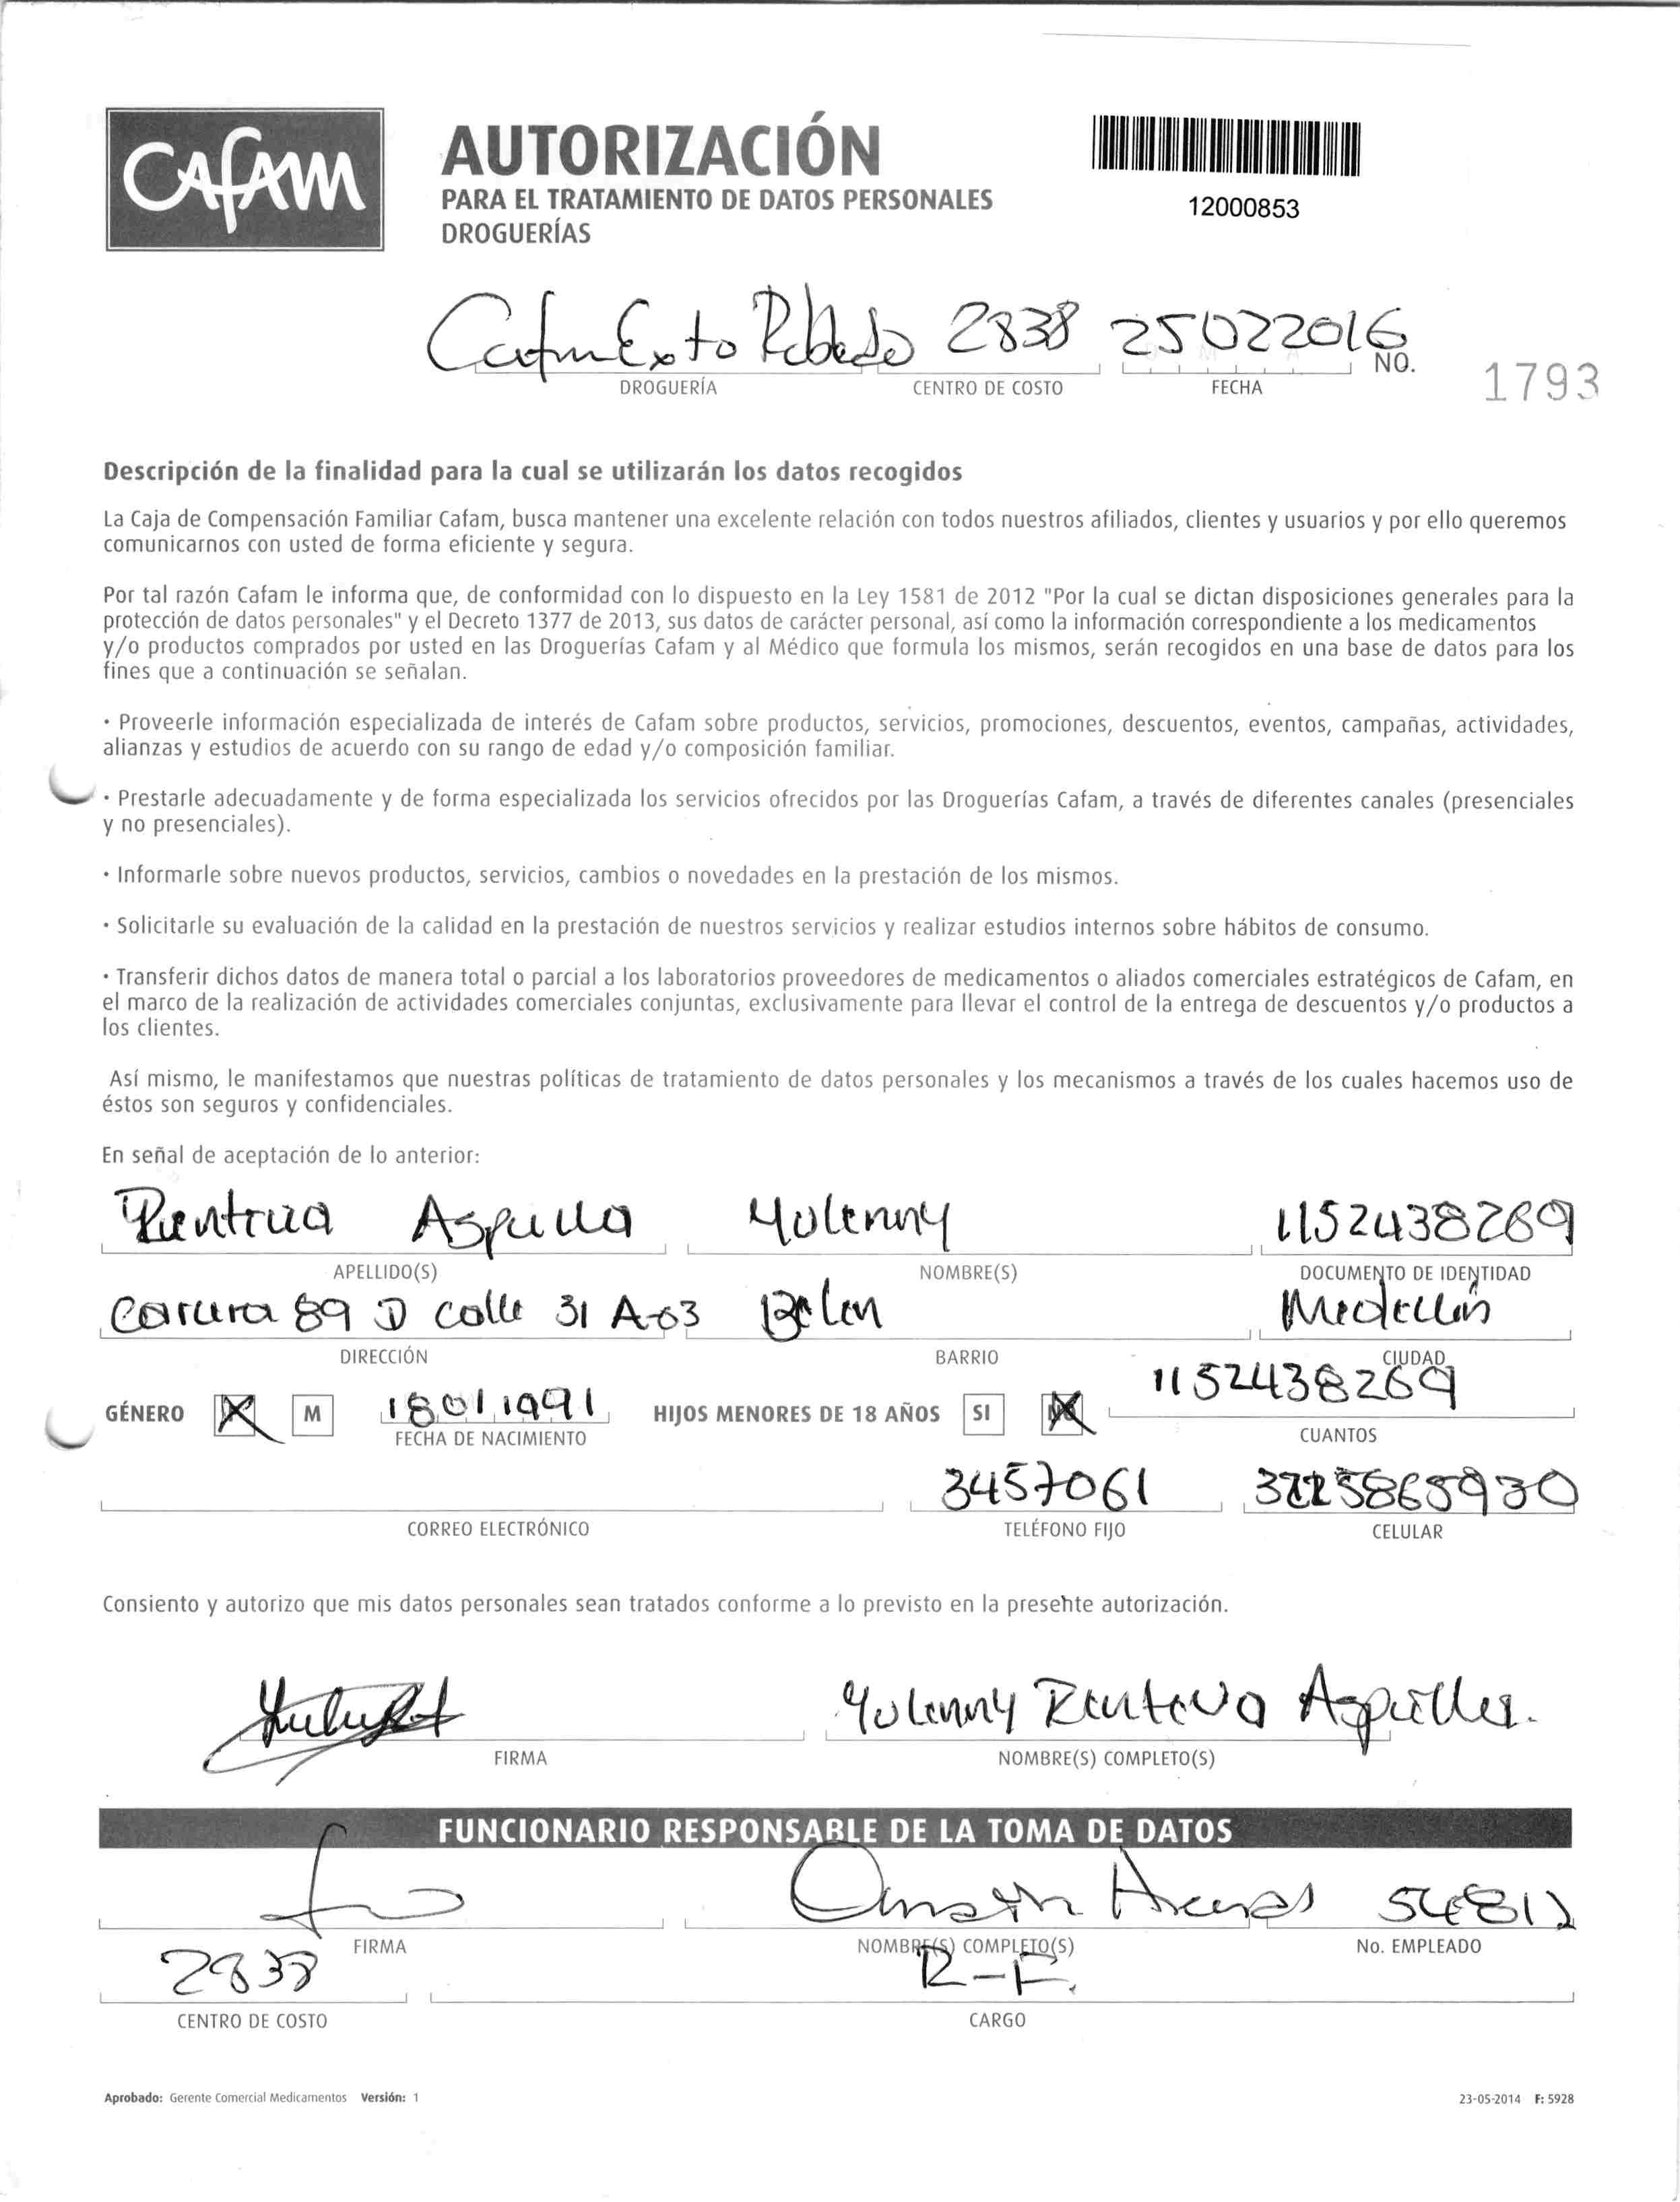 CAFAM
AUTORIZACIÓN
PARA EL TRATAMIENTO DE DATOS PERSONALES
DROGUERÍAS
12000853
2838 25022016
DROGUERÍA CENTRO DE COSTO FECHA NO. 1793
Descripción de la finalidad para la cual se utilizarán los datos recogidos
La Caja de Compensación Familiar Cafam, busca mantener una excelente relación con todos nuestros afiliados, clientes y usuarios y por ello queremos
comunicarnos con usted de forma eficiente y segura.
Por tal razón Cafam le informa que, de conformidad con lo dispuesto en la Ley 1581 de 2012 "Por la cual se dictan disposiciones generales para la
protección de datos personales" y el Decreto 1377 de 2013, sus datos de carácter personal, así como la información correspondiente a los medicamentos
y/o productos comprados por usted en las Droguerías Cafam y al Médico que formula los mismos, serán recogidos en una base de datos para los
fines que a continuación se señalan.
· Proveerle información especializada de interés de Cafam sobre productos, servicios, promociones, descuentos, eventos, campañas, actividades,
alianzas y estudios de acuerdo con su rango de edad y/o composición familiar.
· Prestarle adecuadamente y de forma especializada los servicios ofrecidos por las Droguerías Cafam, a través de diferentes canales (presenciales
y no presenciales).
· Informarle sobre nuevos productos, servicios, cambios o novedades en la prestación de los mismos.
· Solicitarle su evaluación de la calidad en la prestación de nuestros servicios y realizar estudios internos sobre hábitos de consumo.
· Transferir dichos datos de manera total o parcial a los laboratorios proveedores de medicamentos o aliados comerciales estratégicos de Cafam, en
el marco de la realización de actividades comerciales conjuntas, exclusivamente para llevar el control de la entrega de descuentos y/o productos a
los clientes.
Así mismo, le manifestamos que nuestras políticas de tratamiento de datos personales y los mecanismos a través de los cuales hacemos uso de
éstos son seguros y confidenciales.
En señal de aceptación de lo anterior:
Yulenny 1152438269
APELLIDO(S) NOMBRE(S) DOCUMENTO DE IDENTIDAD
89 D calle 31 A-63 Belen Medellin
DIRECCIÓN BARRIO CIUDAD
GÉNERO M 18011991 HIJOS MENORES DE 18 AÑOS SI NO 1152438269
FECHA DE NACIMIENTO CUANTOS
3457061
CORREO ELECTRÓNICO TELÉFONO FIJO CELULAR
Consiento y autorizo que mis datos personales sean tratados conforme a lo previsto en la presente autorización.
Yulenny
FIRMA NOMBRE(S) COMPLETO(S)
FUNCIONARIO RESPONSABLE DE LA TOMA DE DATOS
FIRMA NOMBRE(S) COMPLETO(S) No. EMPLEADO
2838 R-F.
CENTRO DE COSTO CARGO
Aprobado: Gerente Comercial Medicamentos Versión: 1 23-05-2014 F: 5928